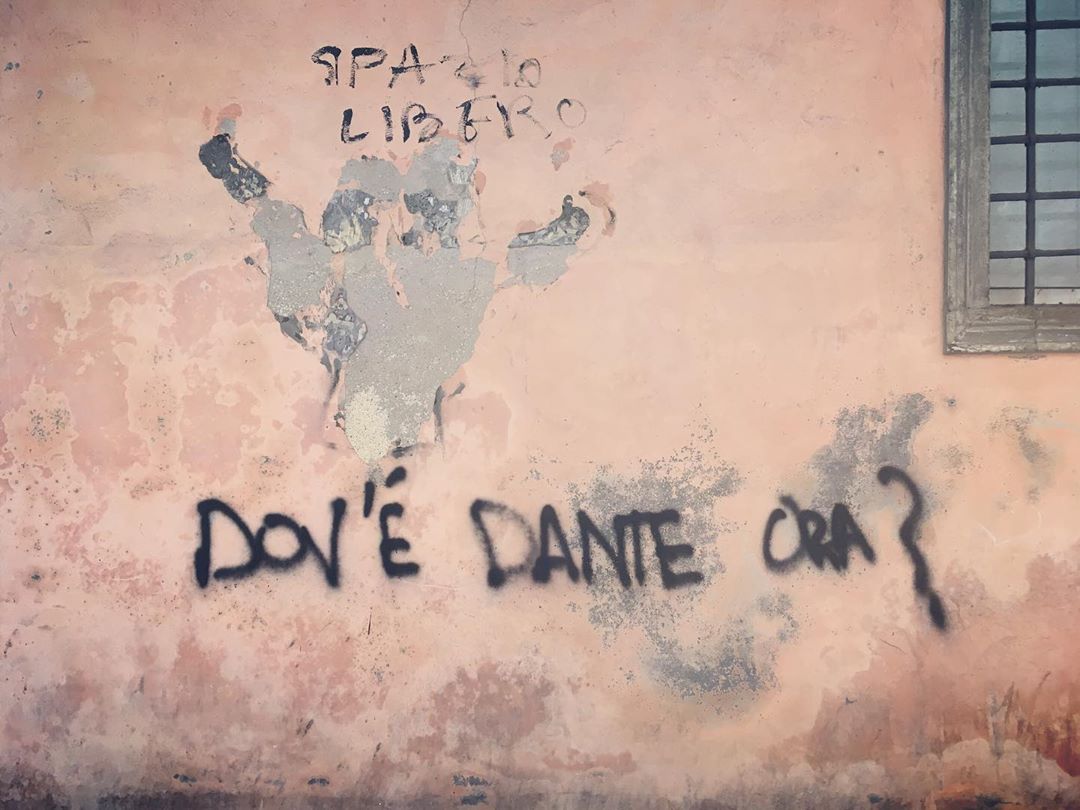 SPAZIO
LIBERO
DOV'É DANTE ORA?